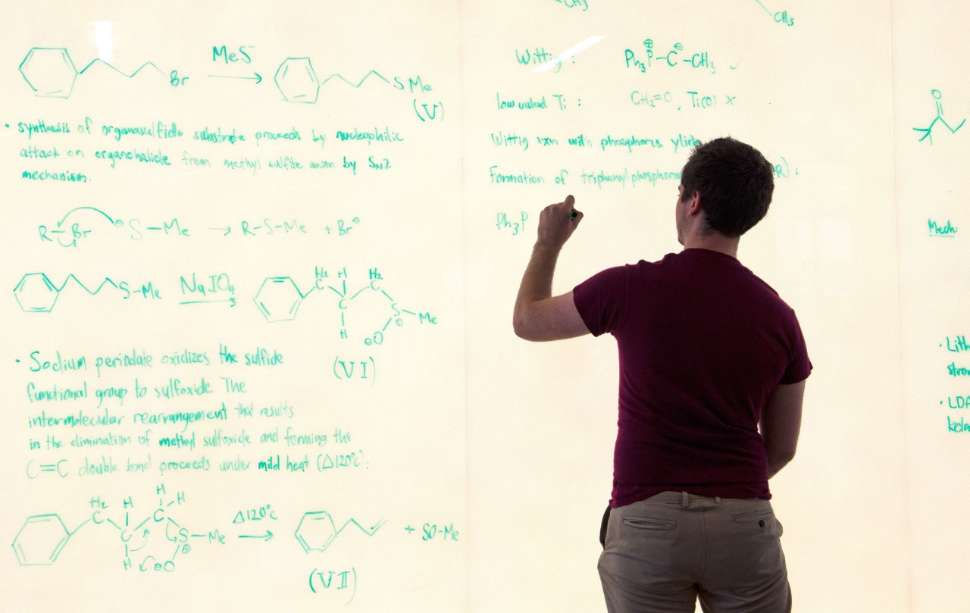 MeS⁻
Br
S Me
(V)
• synthesis of organosulfide substrate proceeds by nucleophilic
attack on organohalide from methyl sulfide anion by SN2
mechanism.
R-Br ⊖S-Me → R-S-Me + Br⊖
S-Me NaIO4
H2 H H2
C C C
H
S-Me
⊕
⊖O
(VI)
• Sodium periodate oxidizes the sulfide
functional group to sulfoxide. The
intermolecular rearrangement that results
in the elimination of methyl sulfoxide and forming the
C=C double bond proceeds under mild heat (Δ120°C).
H2 H H H
C C C
H
S-Me
⊕
⊖O
Δ120°C
+ SO-Me
(VII)
CH3
CH3
Wittig:
Ph3P⊕-C⊖-CH3
low valent Ti:
CH2=O, Ti(0) X
Wittig rxn with phosphorus
Formation of
Ph3P
O
Mech
• Lith
stron
• LDA